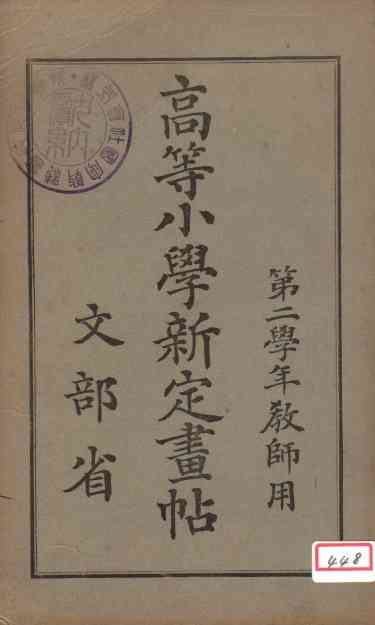 第二學年教師用
高等小學新定畫帖
文部省
448